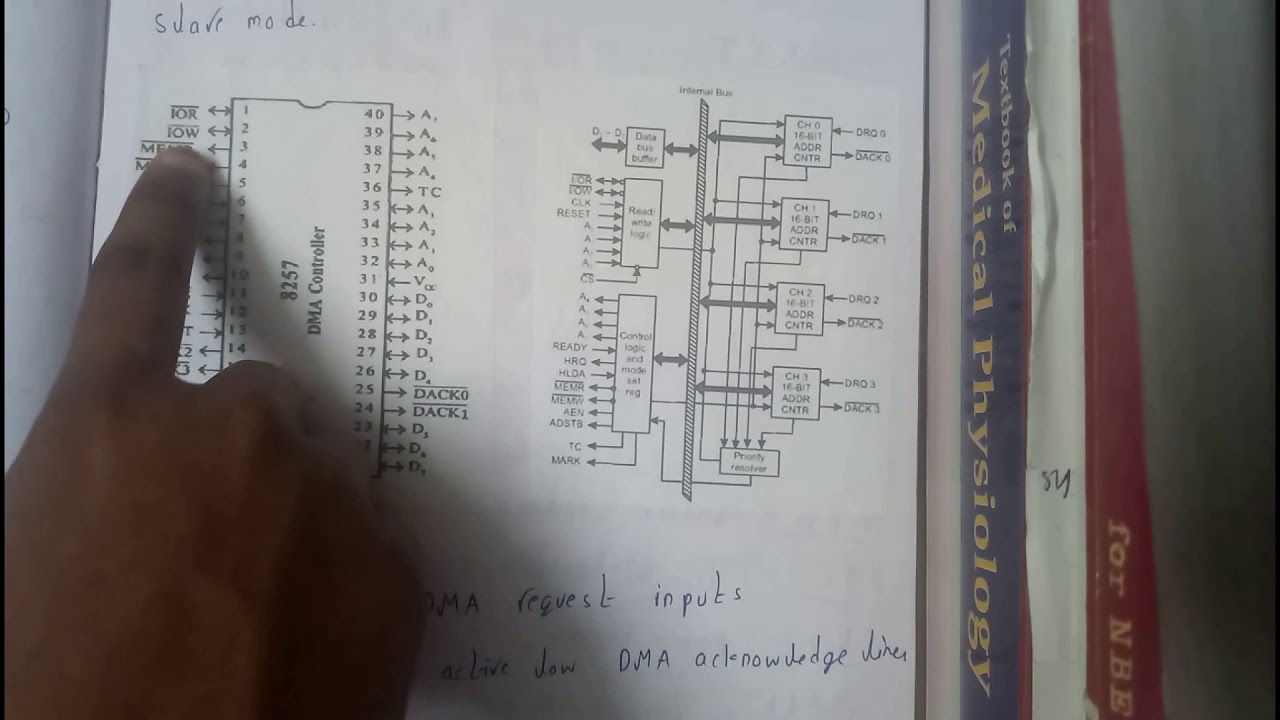 slave mode.
IOR 1
IOW 2
3
4
5
6
7
8
9
10
11
12
13
14
8257
DMA Controller
40 A7
39 A6
38 A5
37 A4
36 TC
35 A3
34 A2
33 A1
32 A0
31 VCC
30 D0
29 D1
28 D2
27 D3
26 D4
25 DACK0
24 DACK1
23 D5
D6
D7
Internal Bus
Data
bus
buffer
I/OR
I/OW
CLK
RESET
CS
Read/
write
logic
READY
HRQ
HLDA
MEMR
MEMW
AEN
ADSTB
TC
MARK
Control
logic
and
mode
set
reg
CH 0
16-BIT
ADDR
CNTR
DRQ 0
DACK 0
CH 1
16-BIT
ADDR
CNTR
DRQ 1
DACK 1
CH 2
16-BIT
ADDR
CNTR
DRQ 2
DACK 2
CH 3
16-BIT
ADDR
CNTR
DRQ 3
DACK 3
Priority
resolver
DMA request inputs
active low DMA acknowledge lines
Textbook of
Medical Physiology
for NEE